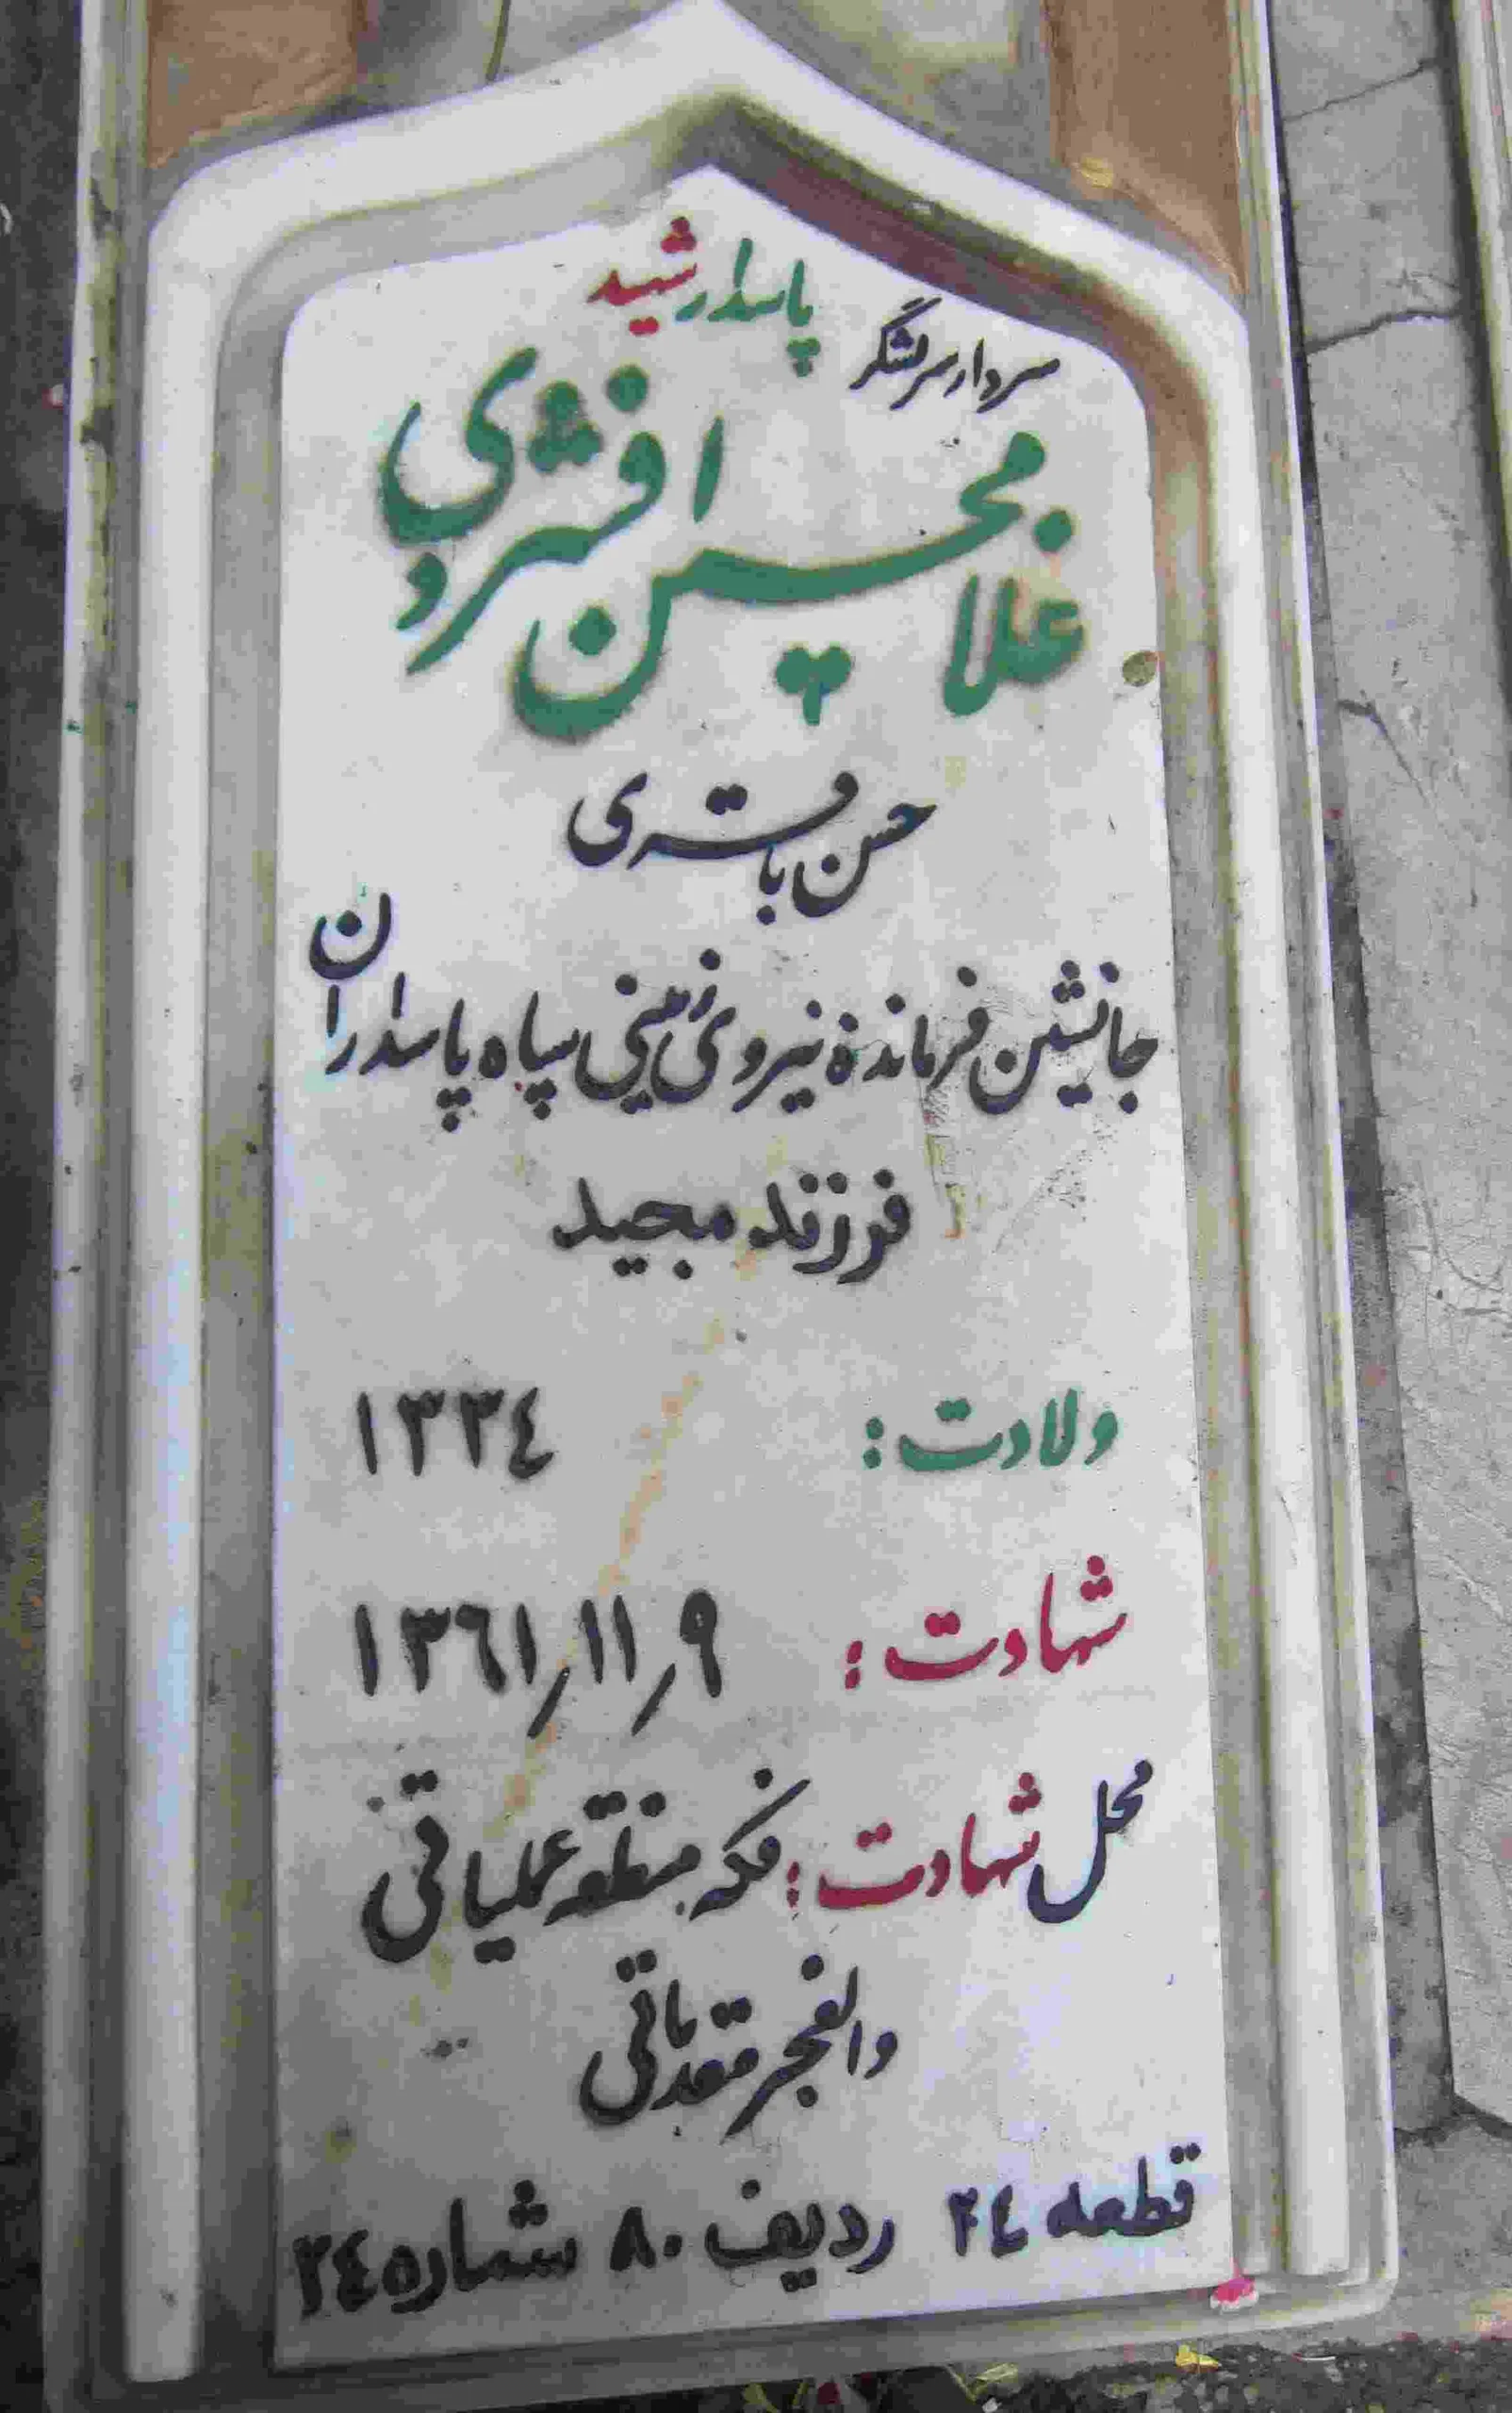 پاسدار شهید
سردار سرلشگر
غلامحسین افشردی
حسن باقری
جانشین فرمانده نیروی زمینی سپاه پاسداران
فرزند مجید
ولادت: ۱۳۳٤
شهادت: ۹/۱۱/۱۳٦۱
محل شهادت: فکه منطقه عملیاتی
والفجر مقدماتی
قطعه ۲٤ ردیف ۸۰ شماره ۲٤